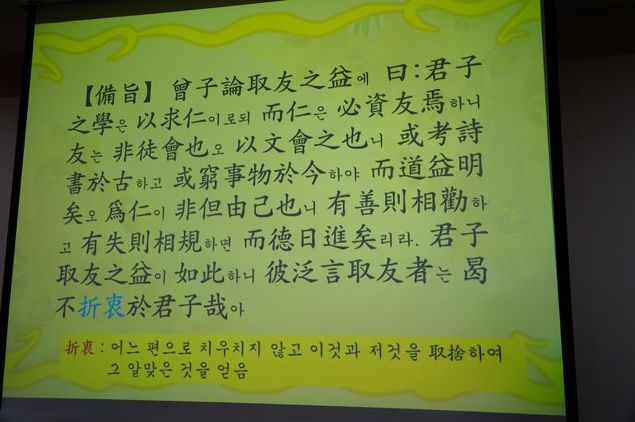 【備旨】 曾子論取友之益에 曰:君子
之學은 以求仁이로되 而仁은 必資友焉하니
友는 非徒會也오 以文會之也니 或考詩
書於古하고 或窮事物於今하야 而道益明
矣오 爲仁이 非但由己也니 有善則相勸하
고 有失則相規하면 而德日進矣리라. 君子
取友之益이 如此하니 彼泛言取友者는 曷
不折衷於君子哉아
折衷 : 어느 편으로 치우치지 않고 이것과 저것을 取捨하여
그 알맞은 것을 얻음